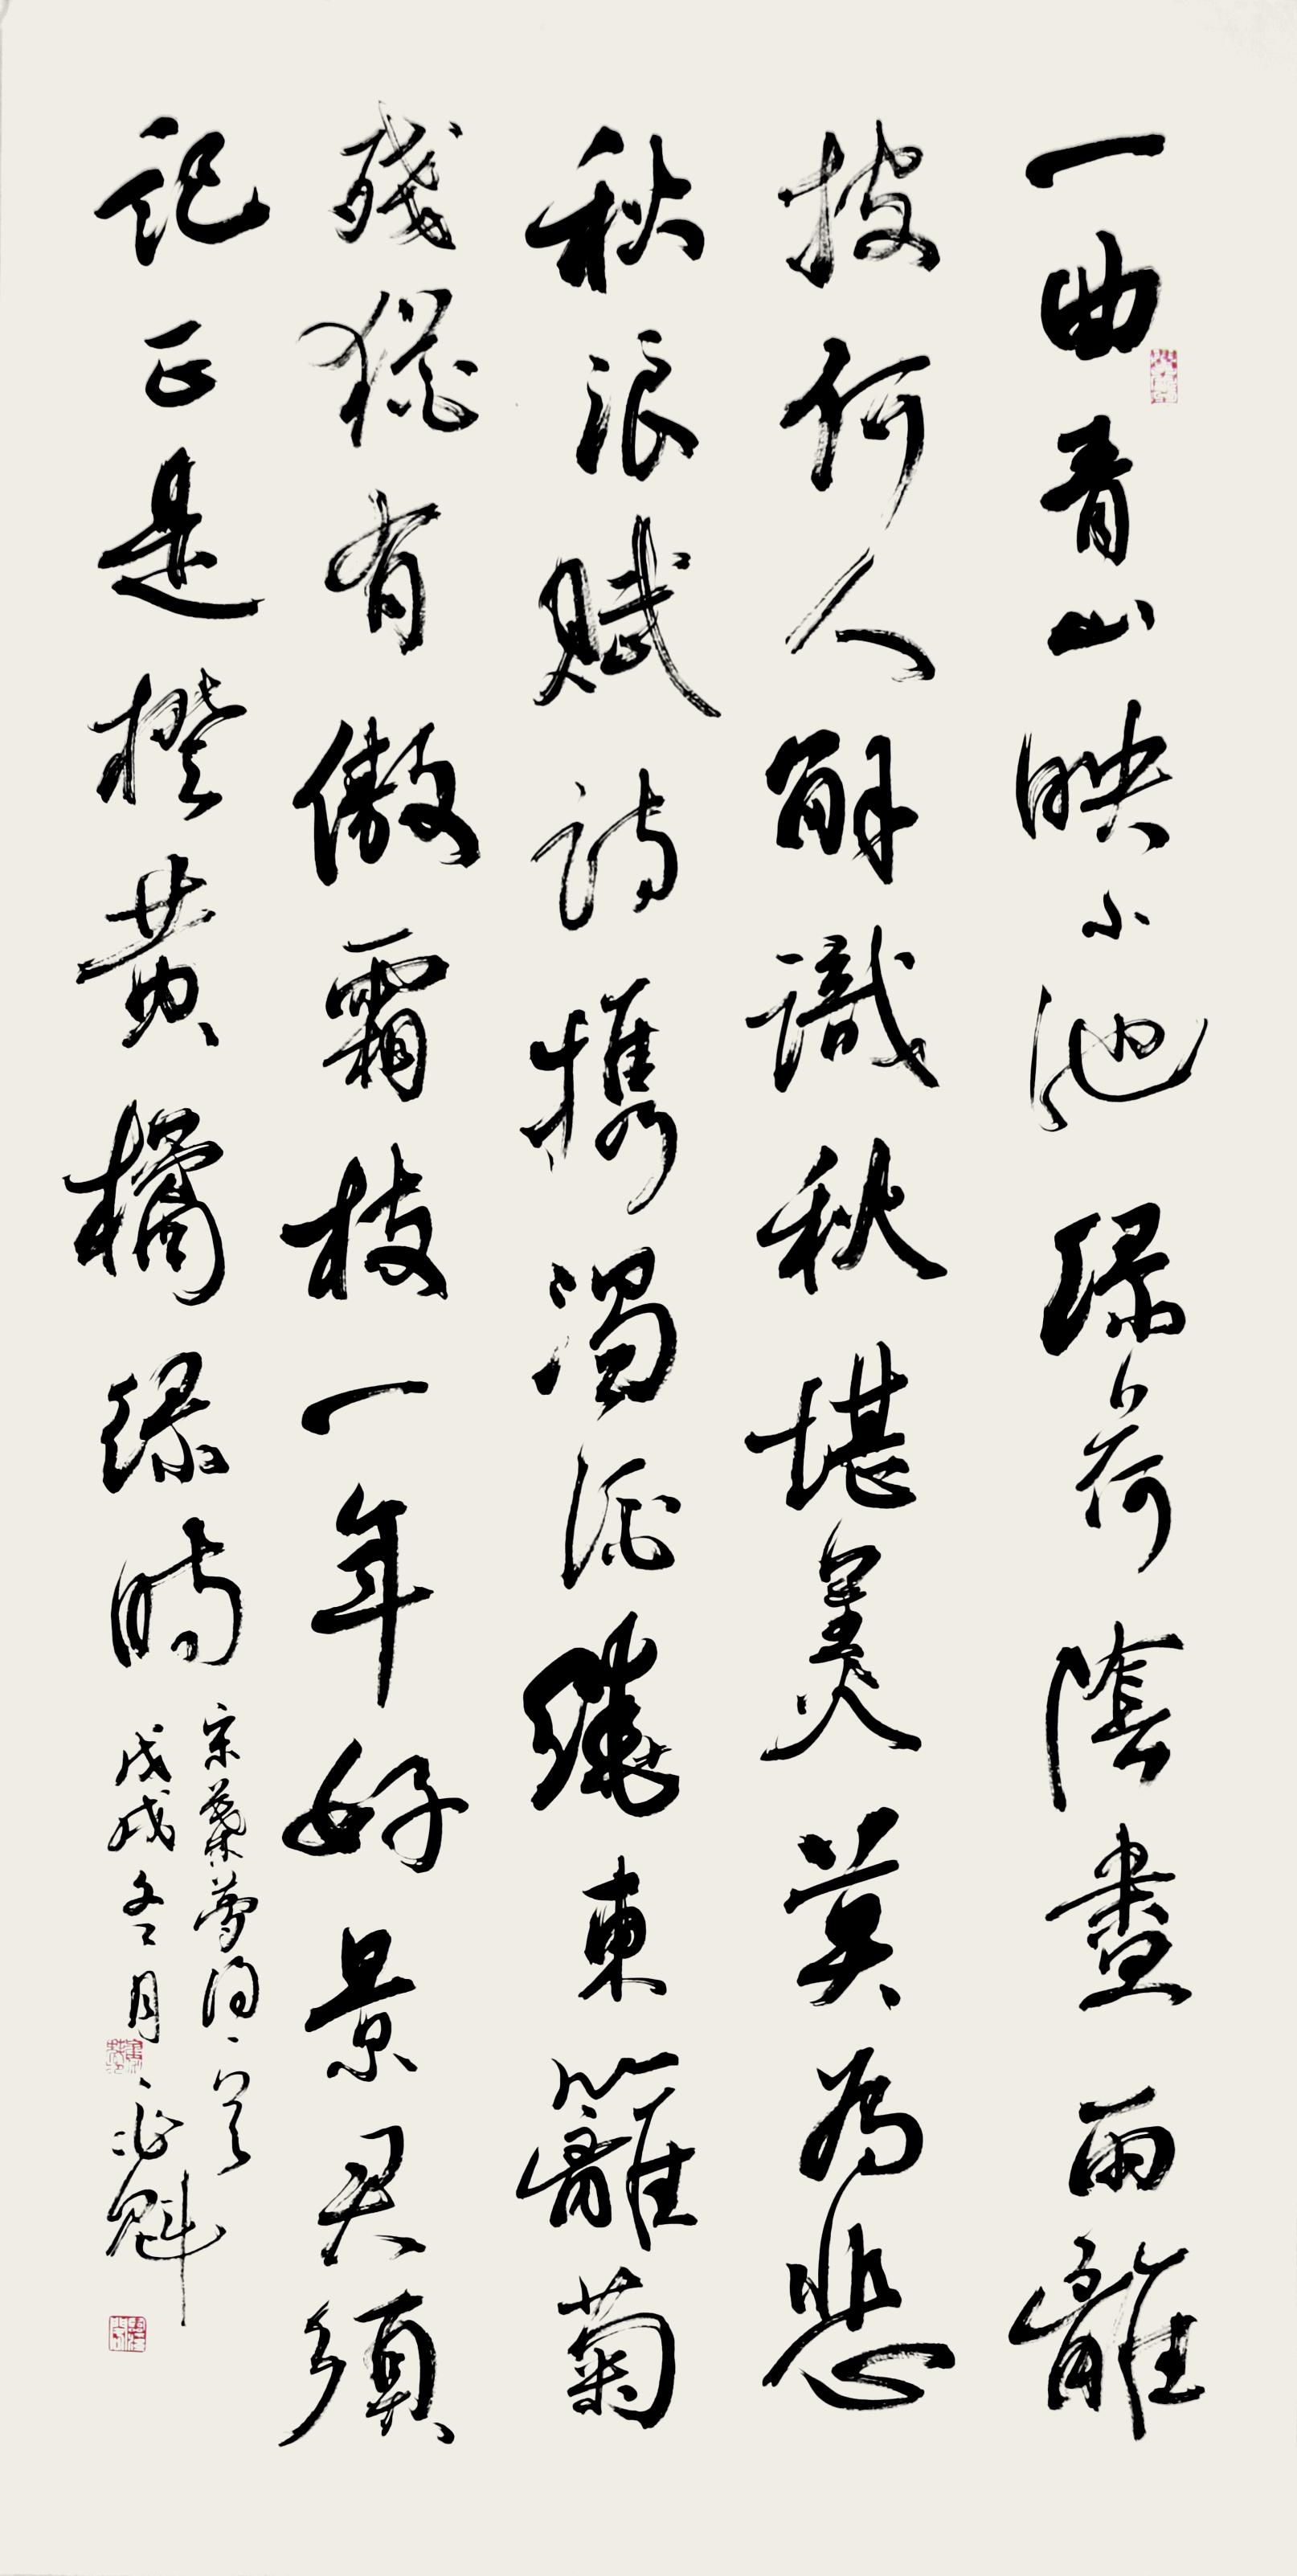 一曲青山映小池綠荷陰盡雨離
披何人解識秋堪美莫為悲
秋浪賦詩携濁酒繞東籬菊
殘猶有傲霜枝一年好景君須
記正是橙黃橘綠時
宋葉夢得
戊戌冬月 魁